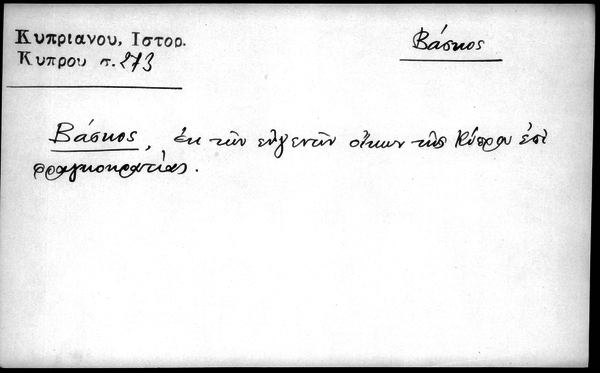 Κυπριανου, Ιστορ.
Κυπρου σ. 273
Βάσκος
Βάσκος, ἐκ τῶν εὐγενῶν οἴκων τῆς Κύπρου ἐπὶ
φραγκοκρατίας.